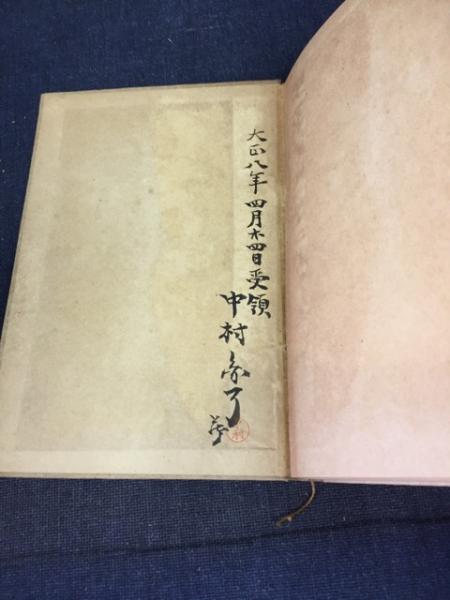 大正八年四月廿四日受領
中村
村